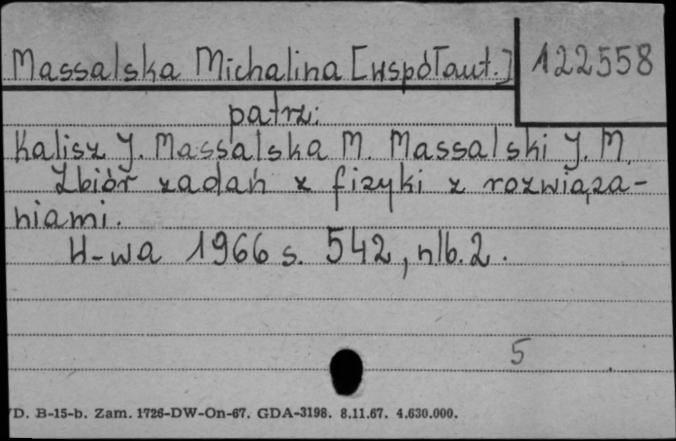 Massalska Michalina [współaut.] 122558
patrz:
Kalisz J. Massalska M. Massalski J. M.
Zbiór zadań z fizyki z rozwiąza-
niami.
W-wa 1966 s. 542, nlb. 2.
5
D. B-15-b. Zam. 1726-DW-On-67. GDA-3198. 8.11.67. 4.630.000.